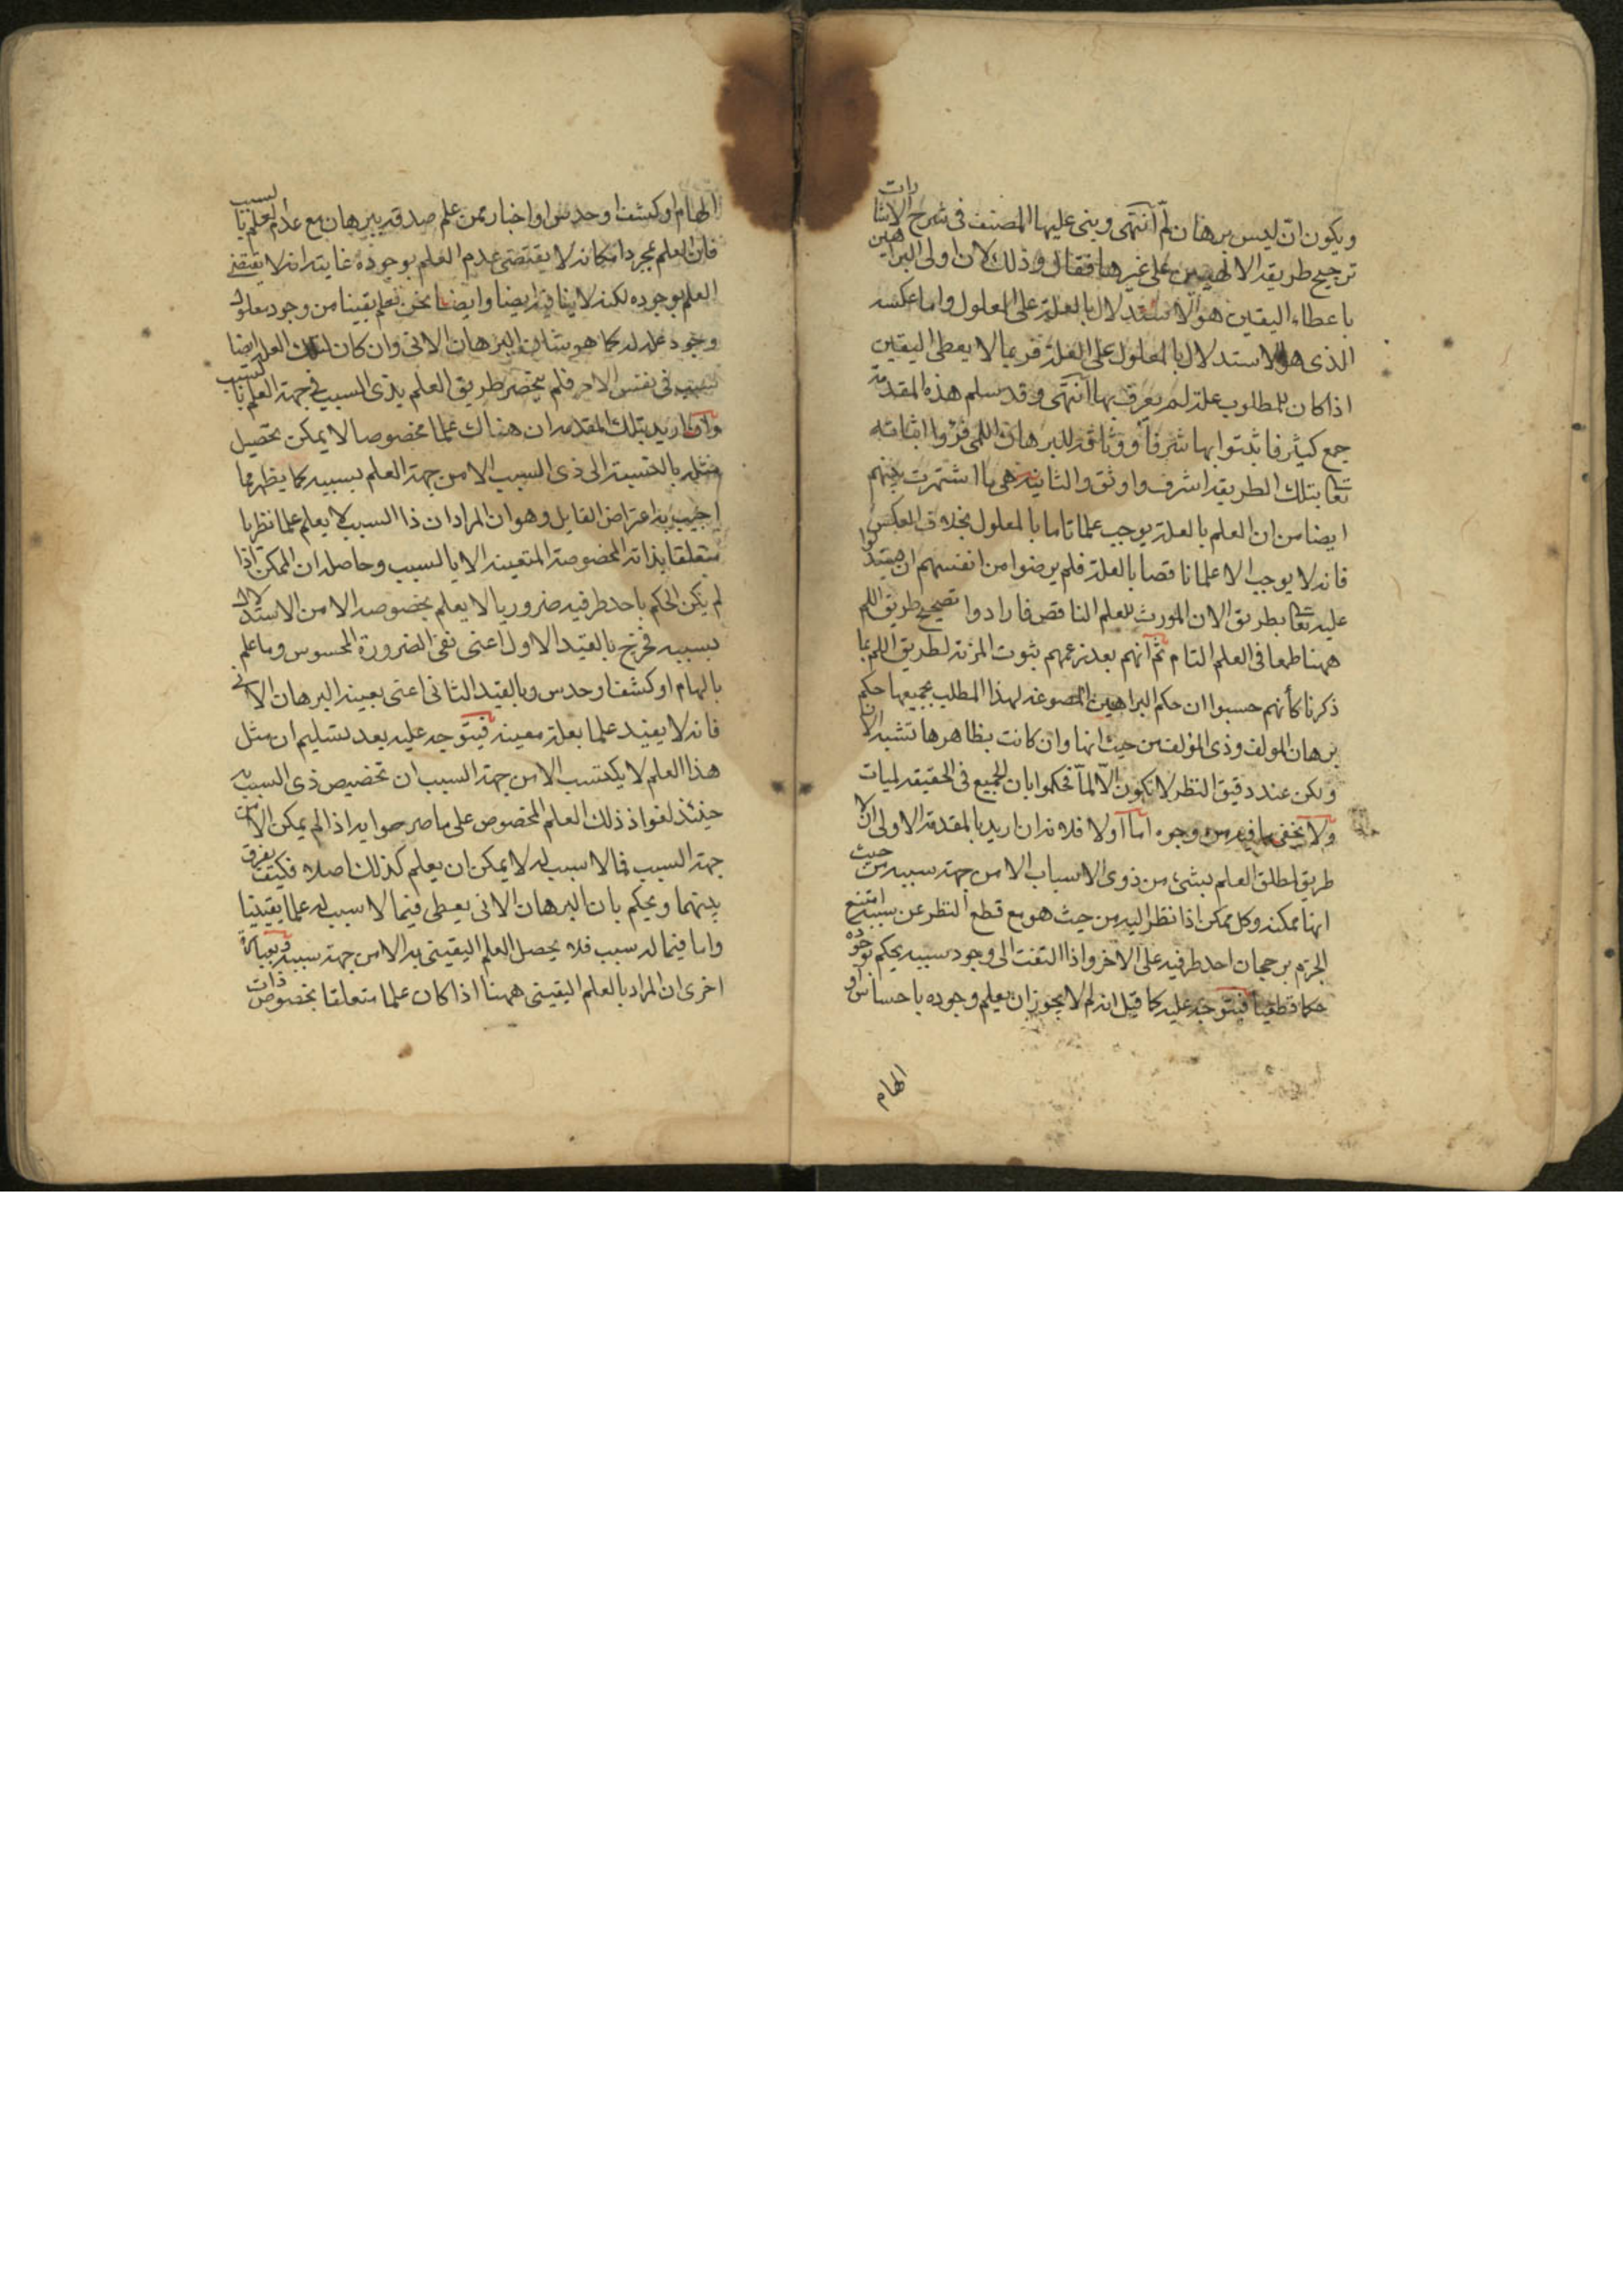 ويكون انّ ليس برهان لمّ انتهى وبنى عليها المصنف فى شرح الاشارات
ترجيح طريقة الالهيين على غيرها فقال وذلك لان اولى البراهين
باعطاء اليقين هو الاستدلال بالعلة على المعلول واما عكسه
الذى هو الاستدلال بالمعلول على العلة فربما لا يعطى اليقين
اذا كان للمطلوب علة لم يعرف بها انتهى وقد سلم هذه المقدمة
جمع كثير فاثبتوا بها شرفا ووثاقة للبرهان اللمى
تعا بتلك الطريقة اشرف واوثق والثانية هى ما اشتهرت بينهم
ايضا من ان العلم بالعلة يوجب علما تاما بالمعلول بخلاف العكس
فانه لا يوجب الا علما ناقصا بالعلة فلم يرضوا من انفسهم ان
عليه تعا بطريق الان المورث للعلم الناقص فارادوا تصحيح طريق اللم
ههنا طمعا فى العلم التام ثم انهم بعد زعمهم ثبوت المزية لطريق اللم بما
ذكرنا كأنهم حسبوا ان حكم البراهين المصوغة لهذا المطلب بجميعها حكم
برهان المولف وذى المؤلف من حيث انها وان كانت بظاهرها تشبه الان
ولكن عند دقيق النظر لا تكون الّا لمّا فحكموا بان الجميع فى الحقيقة لميات
ولا يخفى ما فيه من وجوه اما اولا فلانه ان اريد بالمقدمة الاولى ان لا
طريق لمطلق العلم بشئ من ذوى الاسباب الا من جهة سببه من حيث
انها ممكنة وكل ممكن اذا نظر اليه من حيث هو مع قطع النظر عن سببه امتنع
الجزم برجحان احد طرفيه على الاخر واذا التفت الى وجود سببه يحكم بوجوده
حكما قطعيا فيتوجه عليه كما قيل انه لم لا يجوز ان يعلم وجوده باحساس او
الهام
الهام او كشف او حدس او اخبار ممن علم صدقه ببرهان مع عدم العلم بالسبب
فان العلم بمجرد امكانه لا يقتضى عدم العلم بوجوده غايته انه لا يقتضى
العلم بوجوده لكنه لا ينافيه ايضا وايضا نحن نعلم يقينا من وجود معلول
وجود علة له كما هو شان البرهان الانى وان كان لتلك العلة ايضا
سبب فى نفس الامر فلم ينحصر طريق العلم بذى السبب فى جهة العلم بالسبب
وان اريد بتلك المقدمة ان هناك علما مخصوصا لا يمكن تحصيل
مثله بالنسبة الى ذى السبب الا من جهة العلم بسببه كما يظهر مما
اجيب به اعتراض القايل وهو ان المراد ان ذا السبب لا يعلم علما نظريا
متعلقا بذاته المخصوصة المتعينة الا بالسبب وحاصله ان الممكن اذا
لم يكن الحكم باحد طرفيه ضروريا لا يعلم بخصوصه الا من الاستدلال
بسببه فخرج بالقيد الاول اعنى نفى الضرورة المحسوس وما علم
بالهام او كشف او حدس وبالقيد الثانى اعنى بعينه البرهان الانى
فانه لا يفيد علما بعلة معينة فيتوجه عليه بعد تسليم ان مثل
هذا العلم لا يكتسب الا من جهة السبب ان تخصيص ذى السبب به
حينئذ لغو اذ ذلك العلم المخصوص على ما صرحوا به اذا لم يمكن الا من
جهة السبب فما لا سبب له لا يمكن ان يعلم كذلك اصلا فكيف يفرق
بينهما ويحكم بان البرهان الانى يعطى فيما لا سبب له علما يقينيا
واما فيما له سبب فلا يحصل العلم اليقينى به الا من جهة سببه وبعبارة
اخرى ان المراد بالعلم اليقينى ههنا اذا كان علما متعلقا بخصوص ذات